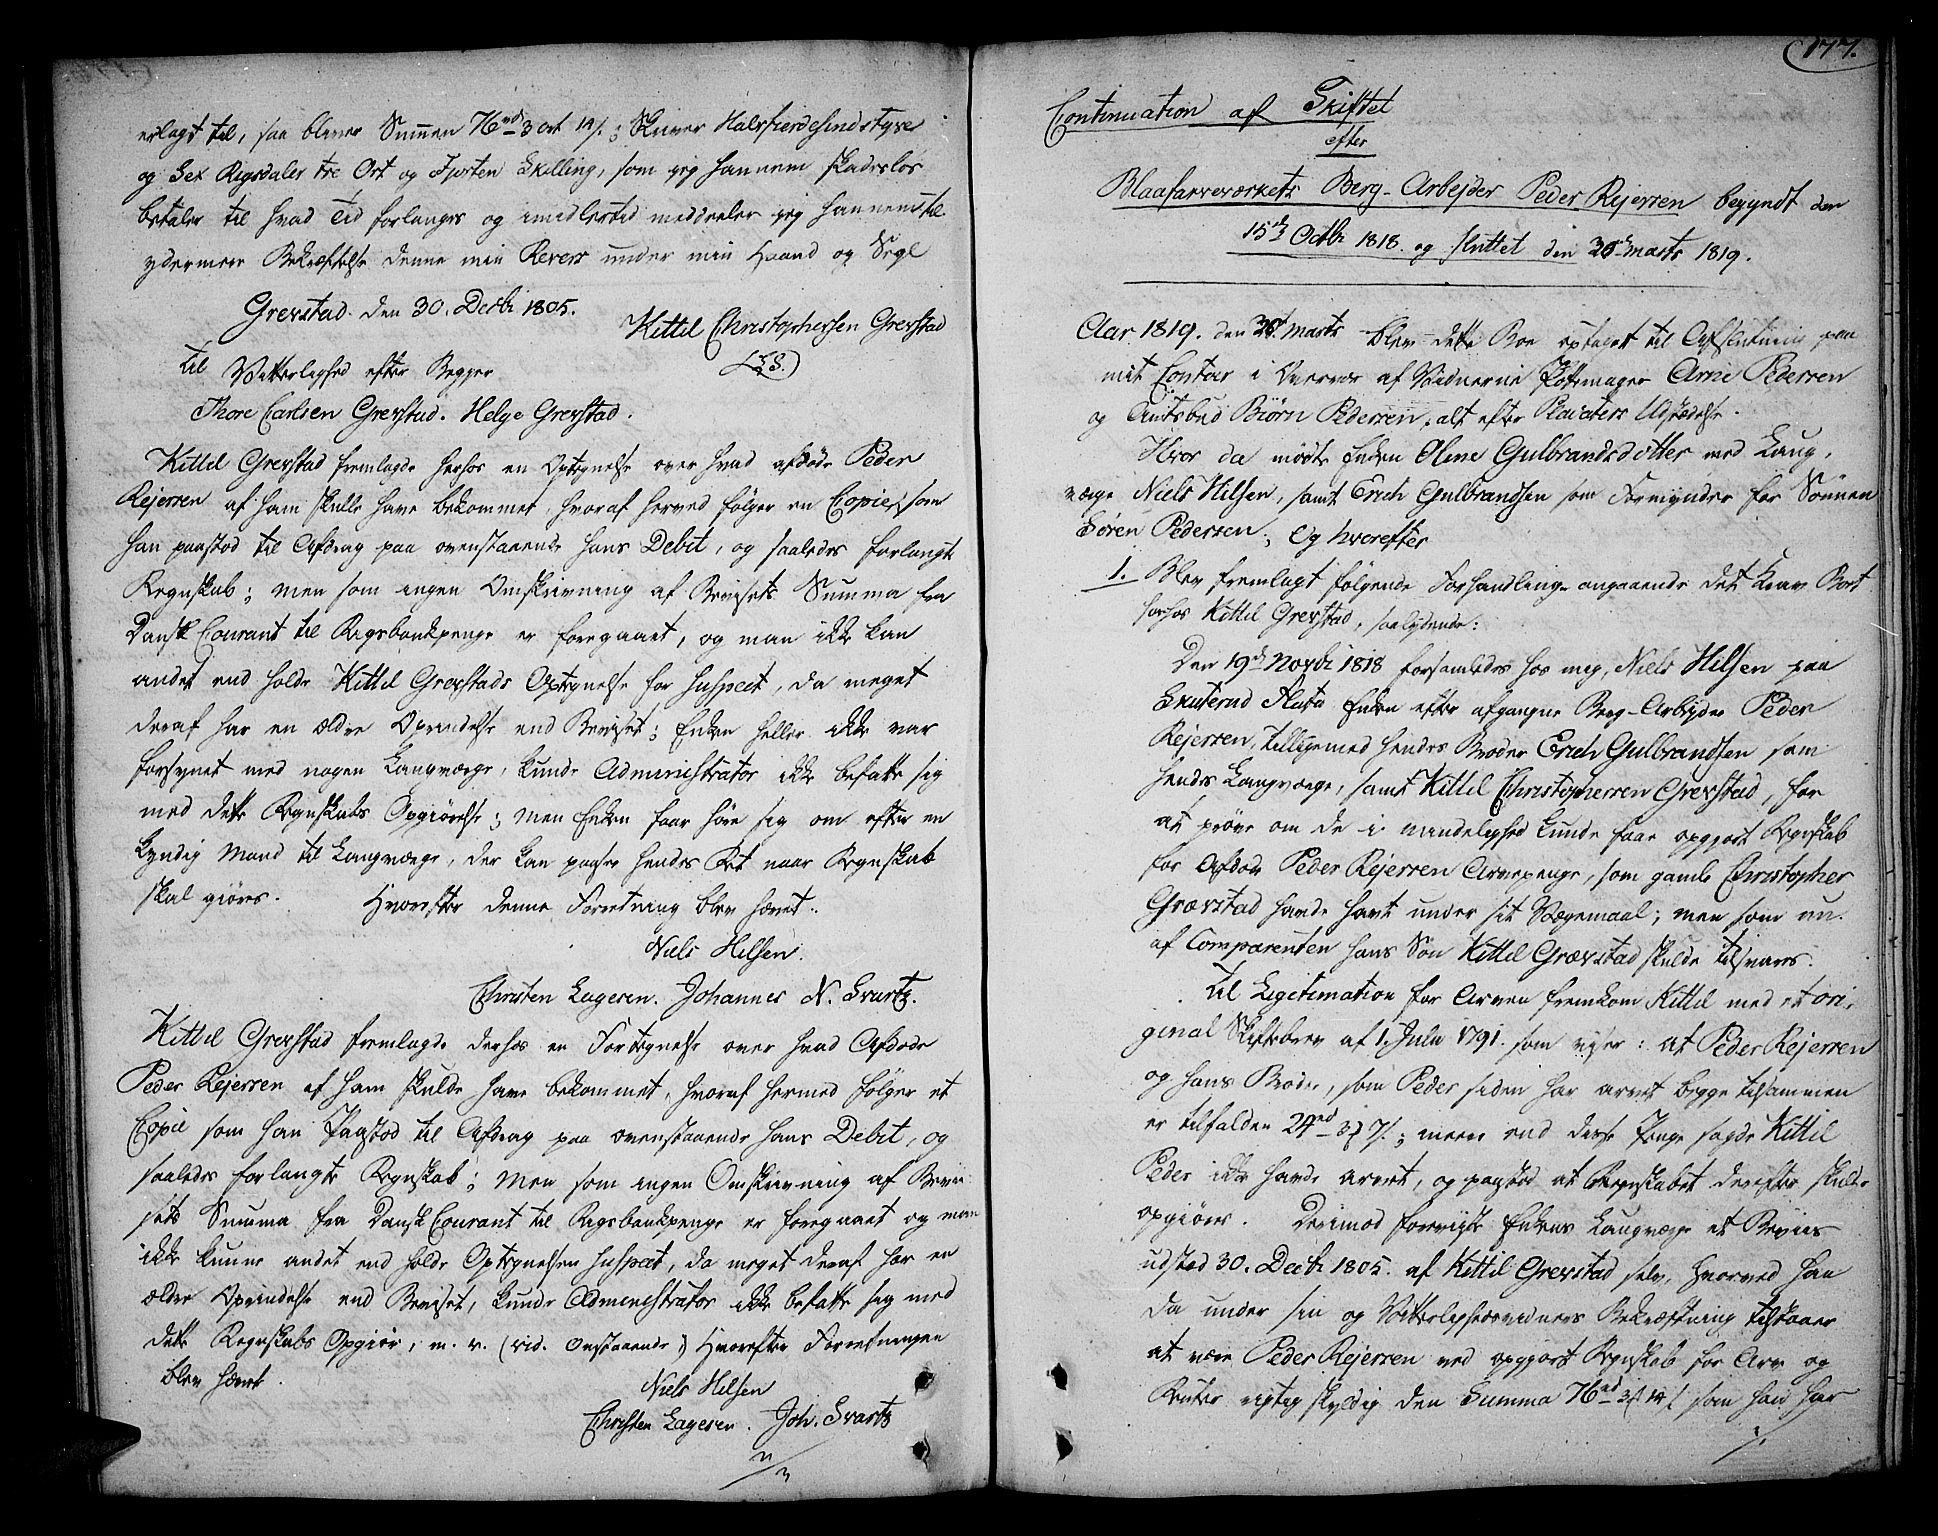 erlagt til, saa bliver Summen 76rd 3 ort 14/. ; Skriver Halvfierdesindstyve
og Sex Rigsdaler tre Ort og Fjorten Skilling, som jeg hannem skadesløs
betaler til hvad Tid forlanges og imidlertid meddeeler jeg hannem til
ydermeere Bekræftelse denne min Revers under min Haand og Segl
Grevstad den 30. Decbr 1805.
Kittil Christophersen Grevstad
(L.S.)
Til Vitterlighed efter Begger
Thore Carlsen Grevstad. Helge Grevstad.
Kittil Grevstad fremlagde herhos en Optegnelse over hvad afdøde Peder
Rejersen af ham skulle have bekommet, hvoraf herved følger en Copie, som
han paastod til Afdrag paa ovenstaaende hans Debit, og saaledes forlangte
Regnskab; men som ingen Omskrivning af Bevisets Summa fra
Dansk Courant til Rigsbankpenge er foregaaet, og man ikke kan
andet end holde Kittil Grevstads Optegnelse for suspect, da meget
deraf har en ældre Oprindelse end Beviset; Enken heller ikke var
forsynet med nogen Laugværge, kunde Administrator ikke befatte sig
med dette Regnskabs Opgiørelse; men Enken faar høre sig om efter en
kyndig Mand til Laugværge, der kan paasee hendes Ret naar Regnskab
skal giøres. Hvorefter denne Forretning blev hævet.
Niels Hilsen.
Christen Lagesen. Johannes N. Svartz.
Kittil Grevstad fremlagde derhos en Fortegnelse over hvad Afdøde
Peder Rejersen af ham skulde have bekommet, hvoraf hermed følger et
Copie som han Paastod til Afdrag paa ovenstaaende hans Debit, og
saaledes forlangte Regnskab; Men som ingen Omskrivning af Bevi-
sets Summa fra Dansk Courant til Rigsbankpenge er foregaaet og man
ikke kunne andet end holde Optegnelsen suspect, da meget deraf har en
ældre Oprindelse end Beviset, kunde Administrator ikke befatte sig med
dette Regnskabs Opgiør, m. v. (vid. Ovstaaende) Hvorefter Forretningen
blev hævet.
Niels Hilsen
Christen Lagesen. Joh. Svartz
177.
Continuation af Skiftet
efter
Blaafarveværkets Berg-Arbejder Peder Rejersen begyndt den
15de Octbr 1818. og sluttet den 30te Marts 1819.
Aar 1819. den 30te Marts blev dette Boe optaget til Afslutning paa
mit Contoir i Overvær af Vidnerne Pottemager Arne Pedersen
og Amtsbud Biørn Pedersen, alt efter Placaters Udstædelse.
Hvor da mødte Enken Oline Gulbrandsdotter med Laug-
værge Niels Hilsen, samt Erich Gulbrandsen som Formynder for Sønnen
Søren Pedersen; Og hvorefter
1. Blev fremlagt følgende Forhandling angaaende det Krav Boet
hos Kittil Grevstad, saalydende:
Den 19de Novbr 1818 forsamledes hos mig, Niels Hilsen paa
Skuterud Flata Enken efter afgangne Berg-Arbejder Peder
Rejersen, tilligemed hendes Broder Erich Gulbrandsen som
hendes Laugværge, samt Kittil Christophersen Grevstad, for
at prøve om de i mindelighed kunde faae opgjort Regnskab
for Afdøde Peder Rejersen Arvepenge, som gamle Christopher
Grævstad havde havt under sit Værgemaal; men som nu
af Comparenten hans Søn Kittil Grævstad skulde tilsvares.
Til Legitimation for Arven fremkom Kittil med et ori-
ginal Skiftebrev af 1. Julii 1791. som viser: at Peder Rejersen
og hans Broder, som Peder siden har arvet begge tilsammen
er tilfalden 24rd 3 7/.; meere end disse Penge sagde Kittil
Peder ikke havde arvet, og paastod at Regnskabet derefter skulde
opgiøres. Derimod foreviiste Enkens Laugværge et Beviis
udsted 30. Decbr 1805. af Kittil Grevstad selv, hvorved han
da under sin og Vitterlighedsvidners Bekræftning tilstaaer
at være Peder Rejersen ved opgjort Regnskab for Arv og
Renter rigtig skyldig den Summa 76rd 3 14/ som han har